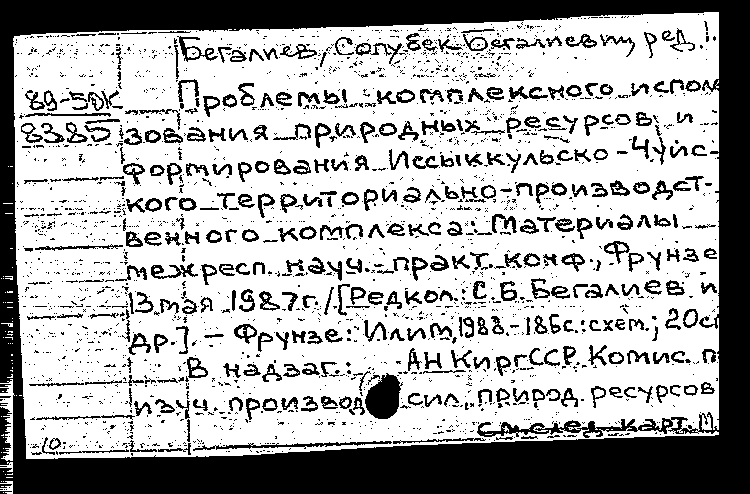 Бегалиев, Сопубек Бегалиевич, ред.
89-5DK Проблемы комплексного исполь
8385 зования природных ресурсов и
формирования Иссыккульско-Чуйс-
кого территориально-производст-
венного комплекса: Материалы
межресп. науч.-практ. конф., Фрунзе
13 мая 1987г. / [Редкол.: С.Б. Бегалиев и
др.]. - Фрунзе: Илим, 1988. - 186с.: схем.; 20см
В надзаг.: АН КиргССР. Комис. п
изуч. производ сил, природ. ресурсов
см. след. карт.
10.